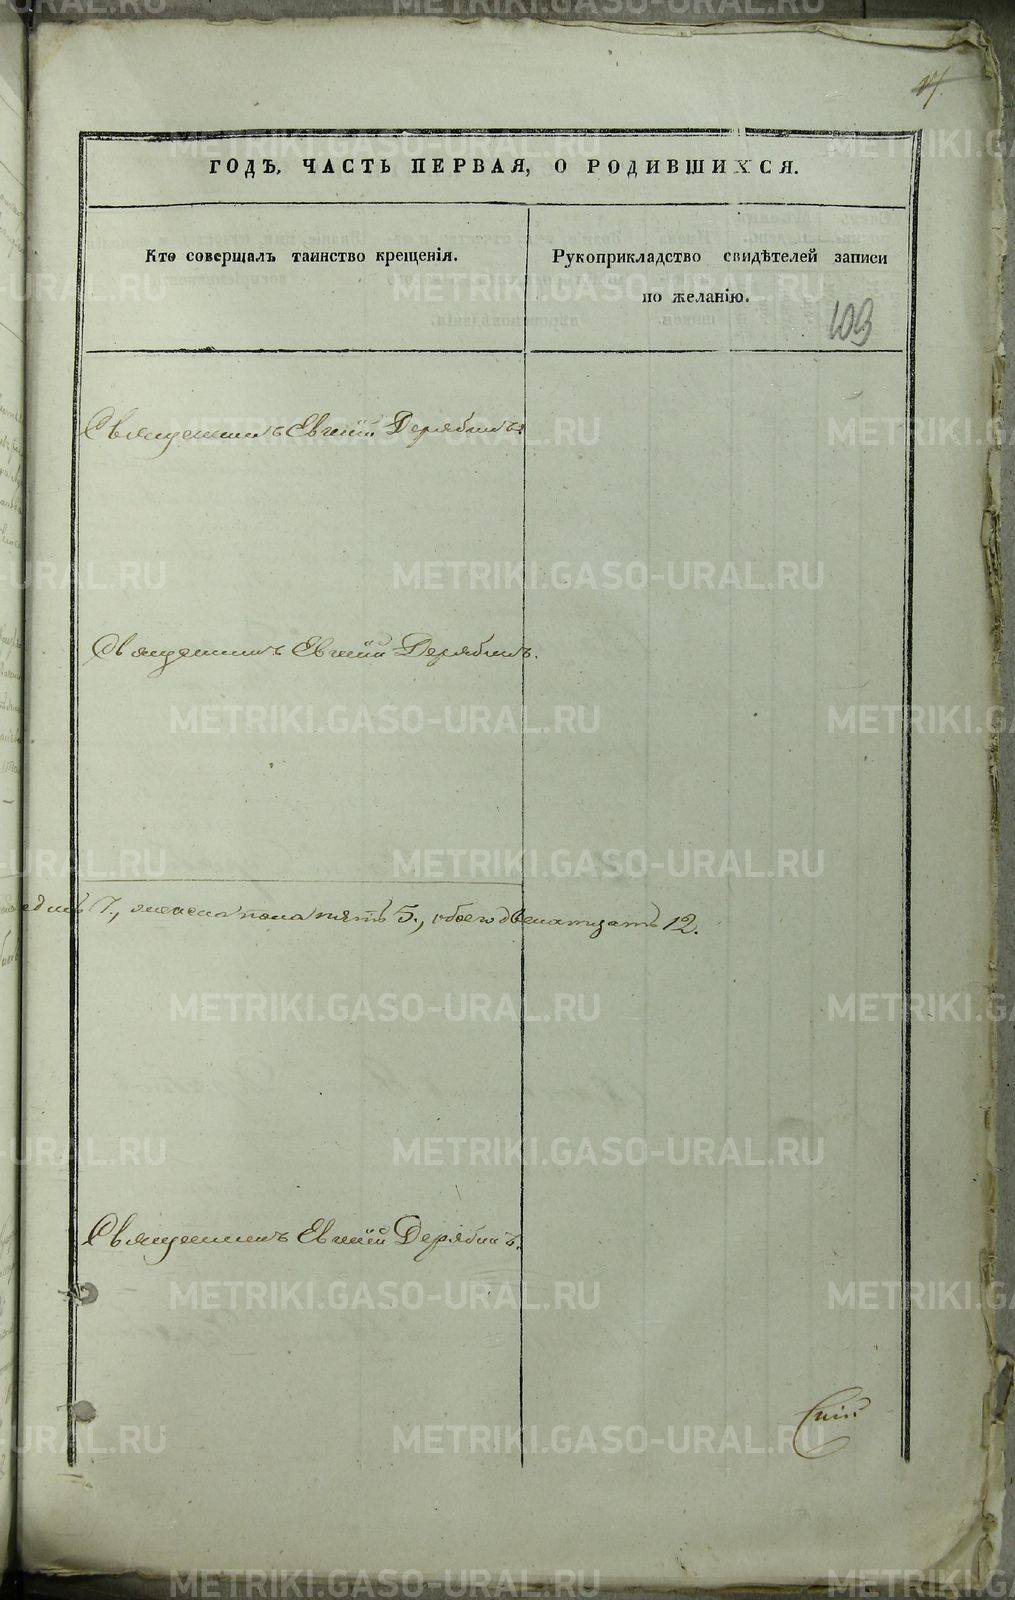 ГОДЪ, ЧАСТЬ ПЕРВАЯ, О РОДИВШИХСЯ.
Кто совершалъ таинство крещенія.
Рукоприкладство свидѣтелей записи
по желанію.
109
Священникъ Евгеній Дерябинъ.
Священникъ Евгеній Дерябинъ.
седмь 7., женска пола пять 5., обоего двенатцать 12.
Священникъ Евгеній Дерябинъ.
METRIKI.GASO-URAL.RU